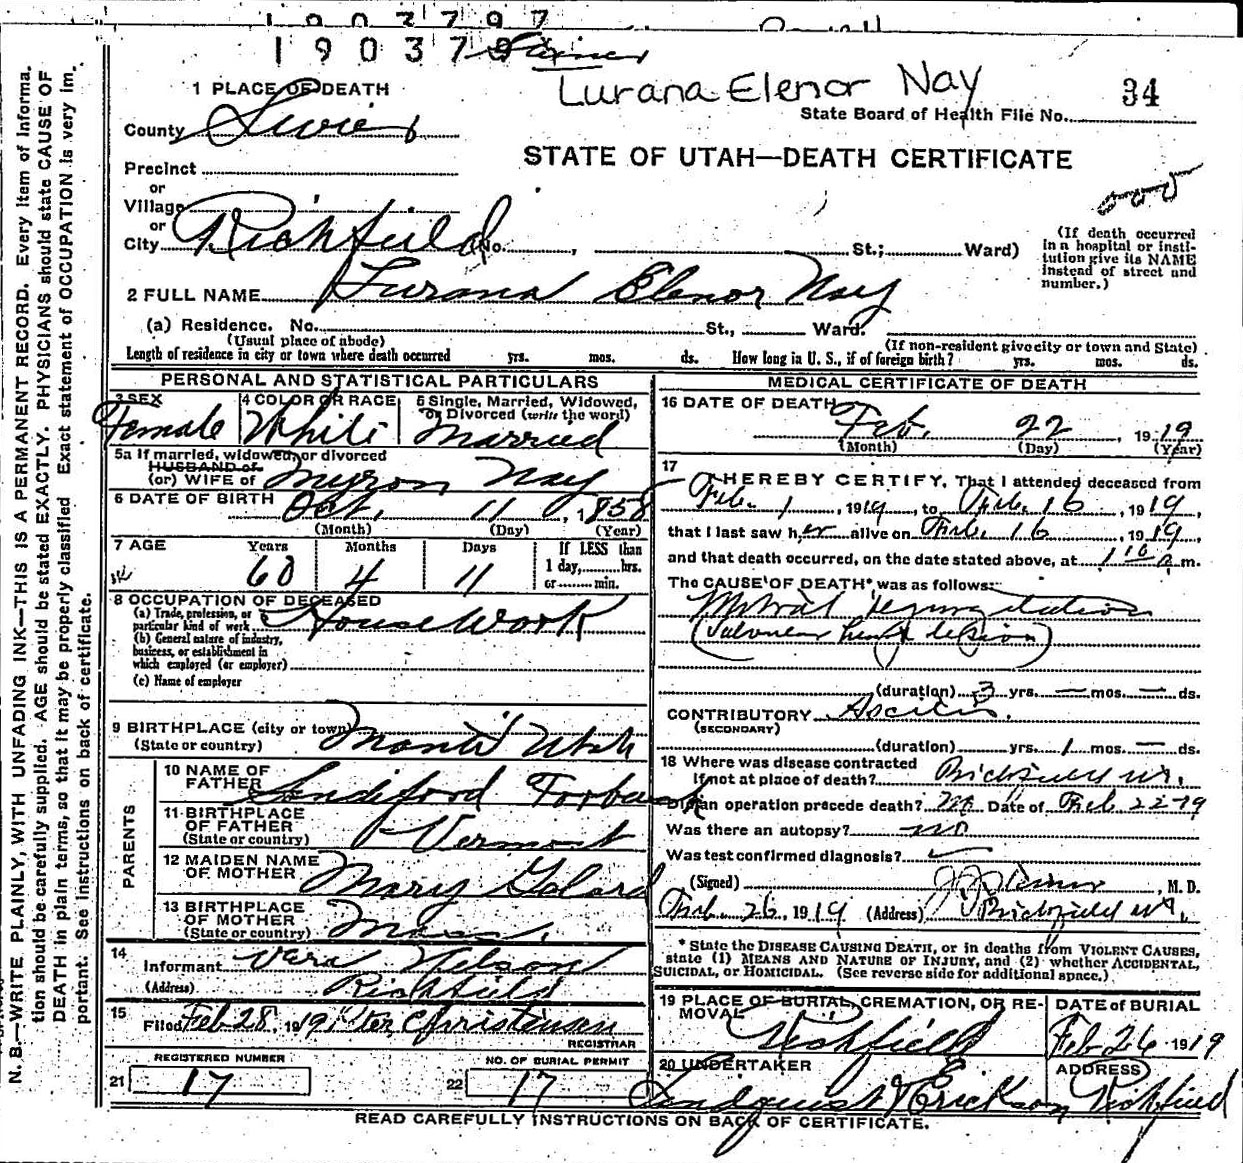 1903797
190379
Lurana Elenor Nay
34
State Board of Health File No.
1 PLACE OF DEATH
County Sevier
STATE OF UTAH—DEATH CERTIFICATE
Precinct
or
Village
or
City Richfield No. , St.; Ward)
(If death occurred in a hospital or insti-
tution give its NAME
instead of street and
number.)
2 FULL NAME Lurana Elenor Nay
(a) Residence. No. St., Ward.
(Usual place of abode)
(If non-resident give city or town and State)
Length of residence in city or town where death occurred yrs. mos. ds. How long in U. S., if of foreign birth? yrs. mos. ds.
PERSONAL AND STATISTICAL PARTICULARS
3 SEX
Female
4 COLOR OR RACE
White
5 Single, Married, Widowed,
or Divorced (write the word)
Married
5a If married, widowed, or divorced
HUSBAND of
(or) WIFE of Myron Nay
6 DATE OF BIRTH Oct. 11, 1858
(Month) (Day) (Year)
7 AGE Years Months Days If LESS than
1 day, hrs.
60 4 11 or min.
8 OCCUPATION OF DECEASED
(a) Trade, profession, or
particular kind of work House Work
(b) General nature of industry,
business, or establishment in
which employed (or employer)
(c) Name of employer
9 BIRTHPLACE (city or town) Manti Utah
(State or country)
PARENTS
10 NAME OF
FATHER Sandiford
11 BIRTHPLACE
OF FATHER Vermont
(State or country)
12 MAIDEN NAME
OF MOTHER Mary
13 BIRTHPLACE
OF MOTHER Mass.
(State or country)
14
Informant Vera Nelson
(Address) Richfield
15
Filed Feb 28, 1919 Christensen
REGISTRAR
REGISTERED NUMBER
21 17
NO. OF BURIAL PERMIT
22 17
MEDICAL CERTIFICATE OF DEATH
16 DATE OF DEATH
Feb. 22, 1919
(Month) (Day) (Year)
17
I HEREBY CERTIFY, That I attended deceased from
Feb. 1, 1919, to Feb. 16, 1919,
that I last saw her alive on Feb. 16, 1919,
and that death occurred, on the date stated above, at m.
The CAUSE OF DEATH* was as follows:
Mitral regurgitation
(Valvular heart lesion)
(duration) 3 yrs. — mos. — ds.
CONTRIBUTORY Ascitis.
(SECONDARY)
(duration) yrs. 1 mos. — ds.
18 Where was disease contracted
if not at place of death? Richfield Ut.
Did an operation precede death? no Date of Feb 22-19
Was there an autopsy? no
Was test confirmed diagnosis?
(Signed) , M. D.
Feb. 26, 1919 (Address) Richfield Ut.
* State the DISEASE CAUSING DEATH, or in deaths from VIOLENT CAUSES,
state (1) MEANS AND NATURE OF INJURY, and (2) whether ACCIDENTAL,
SUICIDAL, or HOMICIDAL. (See reverse side for additional space.)
19 PLACE OF BURIAL, CREMATION, OR RE-
MOVAL
Richfield
DATE of BURIAL
Feb 26 1919
20 UNDERTAKER
Lindquist Erickson
ADDRESS
Richfield
READ CAREFULLY INSTRUCTIONS ON BACK OF CERTIFICATE.
N. B.—WRITE PLAINLY, WITH UNFADING INK—THIS IS A PERMANENT RECORD. Every item of informa-
tion should be carefully supplied. AGE should be stated EXACTLY. PHYSICIANS should state CAUSE OF
DEATH in plain terms, so that it may be properly classified. Exact statement of OCCUPATION is very im-
portant. See instructions on back of certificate.